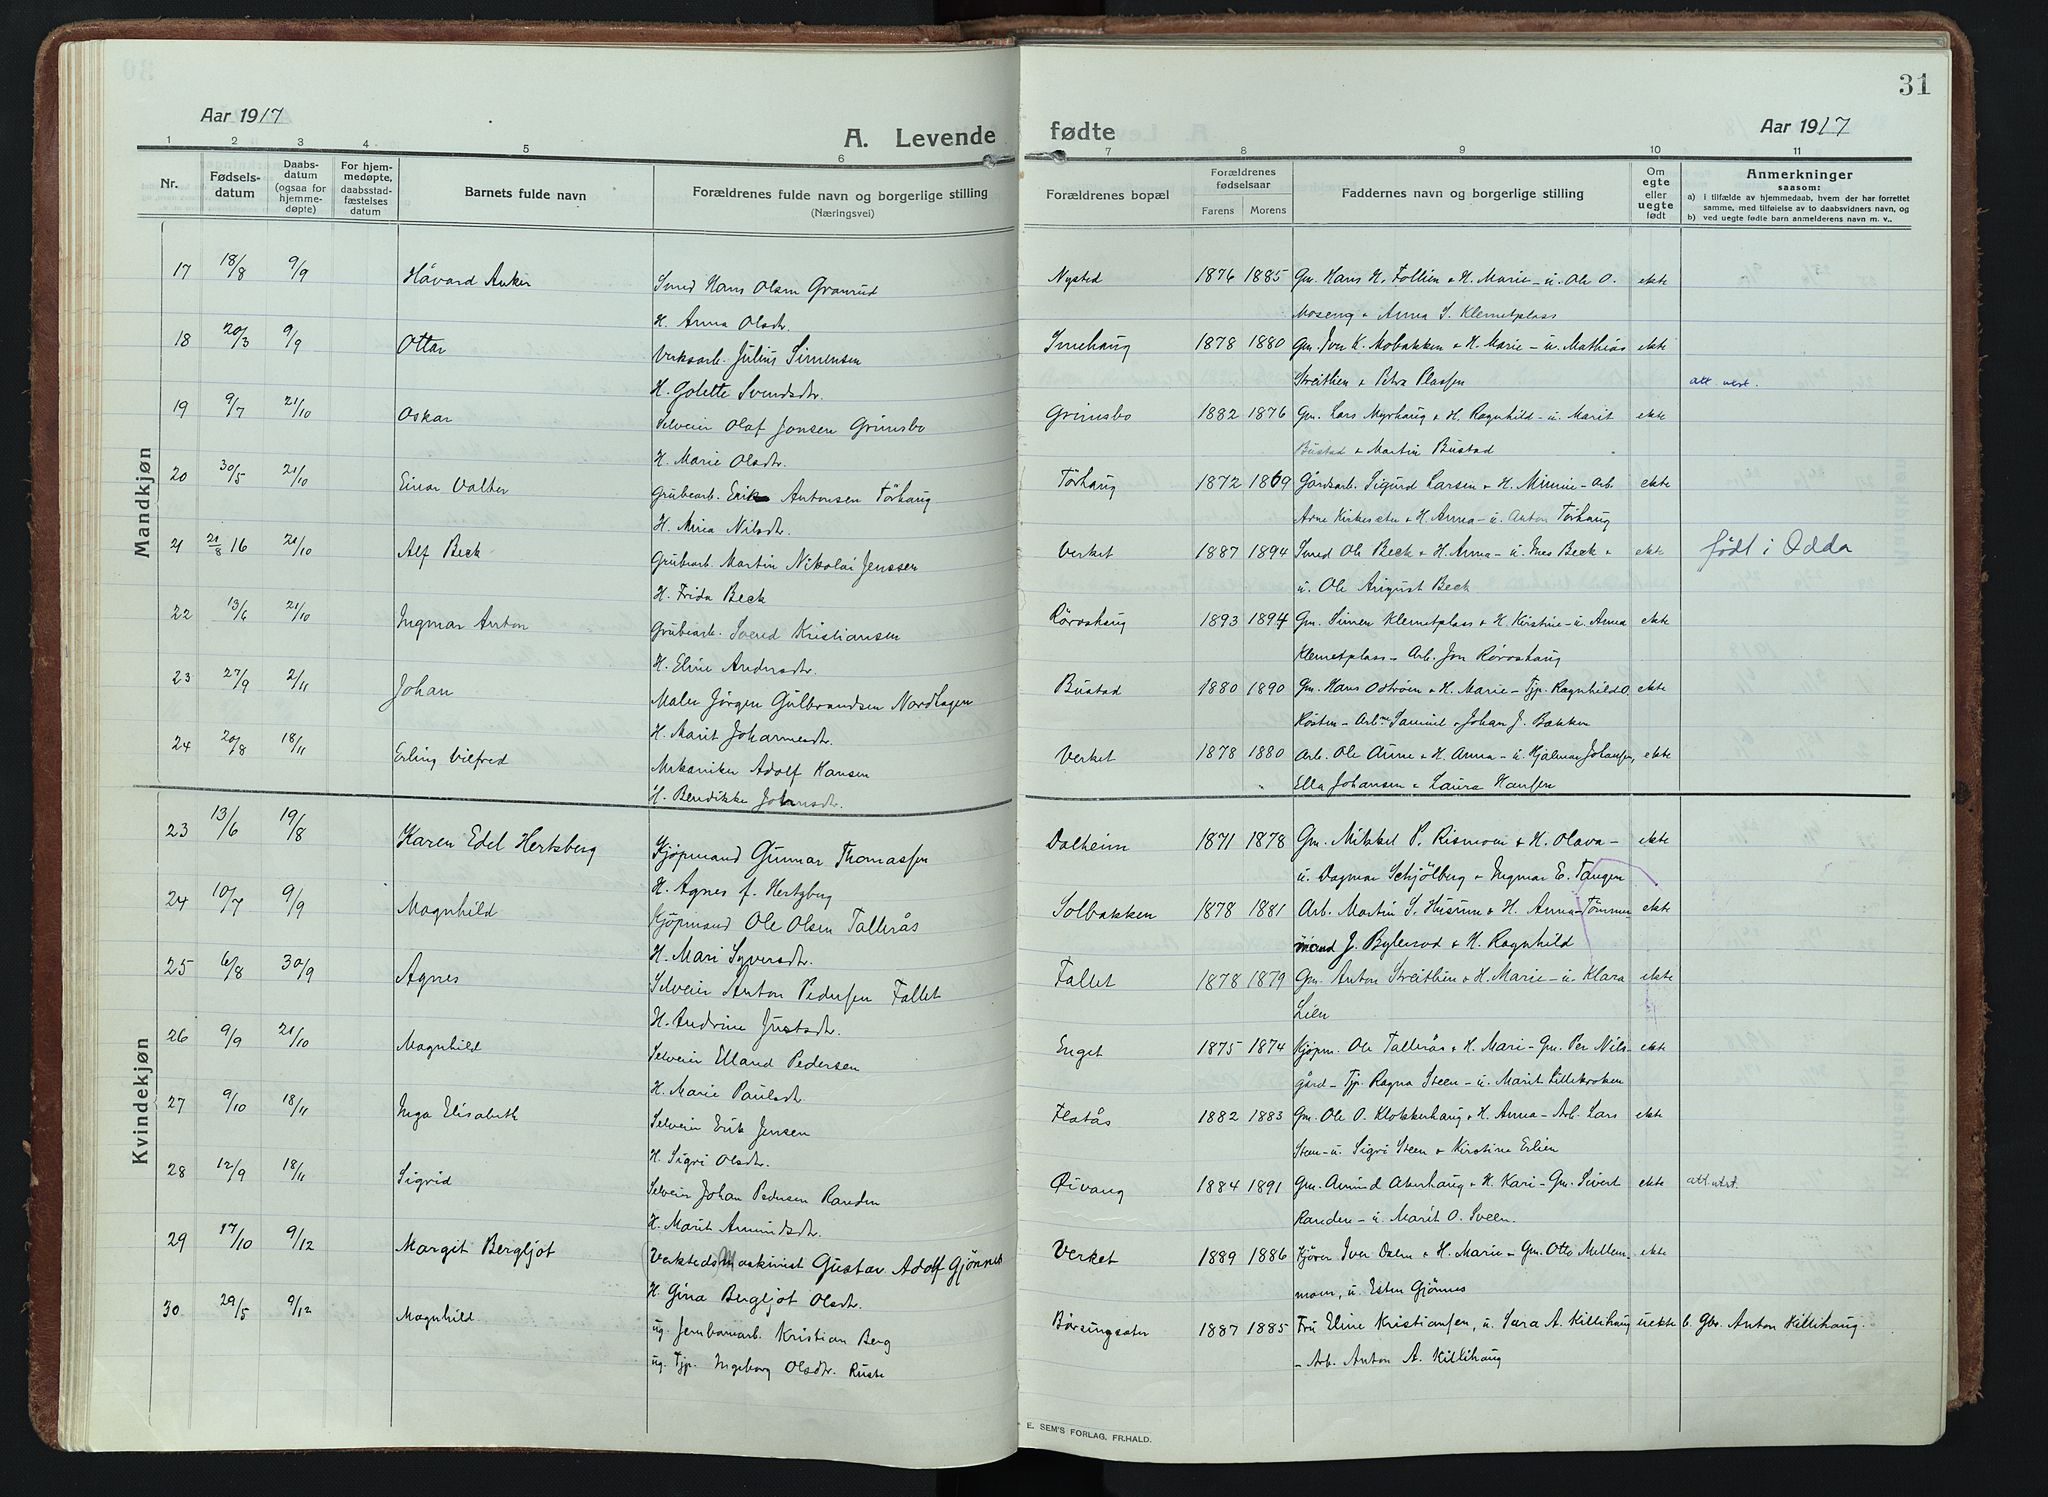 Aar 1917
A. Levende
fødte
Aar 1917
31
1 2 3 4 5 6 7 8 9 10 11
Nr.
Fødsels-
datum
Daabs-
datum
(ogsaa for
hjemme-
døpte)
For hjem-
medøpte,
daabsstad-
fæstelses
datum
Barnets fulde navn
Forældrenes fulde navn og borgerlige stilling
(Næringsvei)
Forældrenes bopæl
Forældrenes
fødselsaar
Farens Morens
Faddernes navn og borgerlige stilling
Om
egte
eller
uegte
født
Anmerkninger
saasom:
a) i tilfælde av hjemmedaab, hvem der har forrettet
samme, med tilføielse av to daabsvidners navn, og
b) ved uegte fødte barn anmelderens navn m. v..
Mandkjøn
17 18/8 9/9 Håvard Anker Smed Hans Olsen Granrud Nysted 1876 1885 Gm. Hans H. Follien & H. Marie – u. Ole O. ekte
H. Anna Olsdtr. Moseng & Anna S. Klemetplass
18 20/3 9/9 Ottar Verksarb. Julius Simensen 1878 1880 Gm. Iver K. Mobakken & H. Marie – u. Mathias ekte
H. Golette Svendsdtr. Streitlien & Petra Plassen att. utst.
19 9/7 21/10 Oskar Selveier Olaf Jonsen Grimsbo Grimsbo 1882 1876 Gm. Lars Myrhaug & H. Ragnhild – u. Marit ekte
H. Marie Olsdtr. Bustad & Martin Bustad
20 30/5 21/10 Einar Valter Grubearb. Erik Antonsen Törhaug Törhaug 1872 1869 Gårdsarb. Sigurd Larsen & H. Minnie – Arb. ekte
H. Mina Nilsdtr. Arne Kirkesæter & H. Anna – u. Anton Törhaug
21 21/8 16 21/10 Alf Beck Grubearb. Martin Nikolai Jenssen Verket 1887 1894 Smed Ole Beck & H. Anna – u. Ines Beck & ekte født i Odda
H. Frida Beck u. Ole August Beck
22 13/6 21/10 Ingmar Anton Grubearb. Svend Kristiansen Röroshaug 1893 1894 Gm. Simen Klemetplass & H. Kirstine – u. Anna ekte
H. Eline Andersdtr. Klemetplass – Arb. Jon Röroshaug
23 27/9 2/11 Johan Maler Jörgen Gulbrandsen Nordhagen Bustad 1880 1890 Gm. Hans Odtröen & H. Marie – Tjp. Ragnhild O. ekte
H. Marit Johannesdtr. Kösten – Arb.ne Samuel & Johan J. Bakken
24 20/8 18/11 Erling Vilfred Mekaniker Adolf Hansen Verket 1878 1880 Arb. Ole Aune & H. Anna – u. Hjalmar Johansen, ekte
H. Bendikke Johnsdtr. Ella Johansen & Laura Hansen
Kvindekjøn
23 13/6 19/8 Karen Edel Hertzberg Kjöpmand Gunnar Thomassen Dalheim 1871 1878 Gm. Mikkel P. Rismoen & H. Olava – ekte
H. Agnes f. Hertzberg u. Dagmar Schjölberg & Ingmar E. Tangen
24 10/7 9/9 Magnhild Kjöpmand Ole Olsen Tallerås Solbakken 1878 1881 Arb. Martin S. Husum & H. Anna – Tömmer ekte
H. Mari Syversdtr. mand J. Bylerud & H. Ragnhild
25 6/8 30/9 Agnes Selveier Anton Pedersen Fallet Fallet 1878 1879 Gm. Anton Streitlien & H. Marie – u. Klara ekte
H. Andrine Justsdtr. Lien
26 9/9 21/10 Magnhild Selveier Elland Pedersen Enget 1875 1874 Kjöpm. Ole Tallerås & H. Mari – Gm. Per Nils- ekte
H. Marie Paulsdtr. gård – Tjp. Ragna Steen – u. Marit Lillekroken
27 9/10 18/11 Inga Elisabeth Selveier Erik Jensen Flatås 1882 1883 Gm. Ole O. Klokkerhaug & H. Anna – Arb. Lars ekte
H. Sigri Olsdtr. Steen – u. Sigri Steen & Kirstine Erlien
28 12/9 18/11 Sigrid Selveier Johan Pedersen Randen Öivang 1884 1891 Gm. Amund Akerhaug & H. Kari – Gm. Sivert ekte att. utst.
H. Marit Amundsdtr. Randen – u. Marit O. Sveen.
29 17/10 9/12 Margit Bergljot (Verksteds) Maskinist Gustav Adolf Gjönnes Verket 1889 1886 Kjörer Iver Dalen & H. Marie – Gm. Otto Mellem ekte
H. Gina Bergljot Olsdtr. moen, u. Esten Gjönnes
30 29/5 9/12 Magnhild ug. Jernbanearb. Kristian Berg Börsungsæter 1887 1885 Fru Eline Kristiansen, u. Sara A. Killihaug uekte b. Gbr. Anton Killihaug.
ug. Tjp. Ingeborg Olsdtr. Ruste – Arb. Anton A. Killihaug
E. SEM'S FORLAG, FR.HALD.